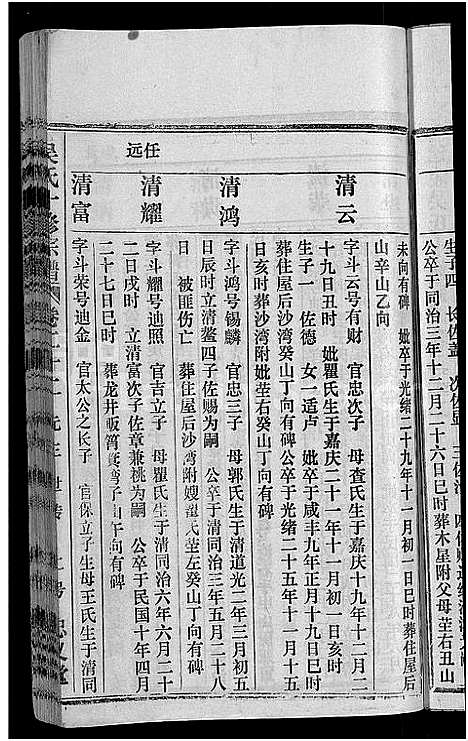 生子四 长佐盖 次佐
公卒于同治三年十二月二十六日巳时葬木星附父母茔右丑山
未向有碑 妣卒于光绪二十九年十一月初一日巳时葬住屋后
山辛山乙向
清云
字斗云号有财 官忠次子 母查氏生于嘉庆十九年十二月二
十九日丑时 妣瞿氏生于嘉庆二十一年十一月初一日亥时
生子一 佐德 女一适卢 妣卒于咸丰九年正月十九日巳时
葬住屋后沙湾癸山丁向有碑公卒于光绪二十五年十一月十五
日亥时葬沙湾附妣茔右癸山丁向有碑
清鸿
字斗鸿号锡麟 官忠三子 母郭氏生于清道光二年三月初五
日辰时立清鳌四子佐赐为嗣 公卒于清同治三年五月二十八
日 被匪伤亡 葬住屋后沙湾附嫂瞿氏茔左癸山丁向有碑
任远
清耀
字斗耀号迪照 官吉立子 母瞿氏生于清同治六年六月二十
二日戌时 立清富次子佐章兼桃为嗣 公卒于民国十年四月
二十七日巳时 葬龙井坂筲箕湾子山午向有碑
清富
字斗荣号迪金 官太公之长子 官保立子生母王氏生于清同
吴氏 修宗谱 卷